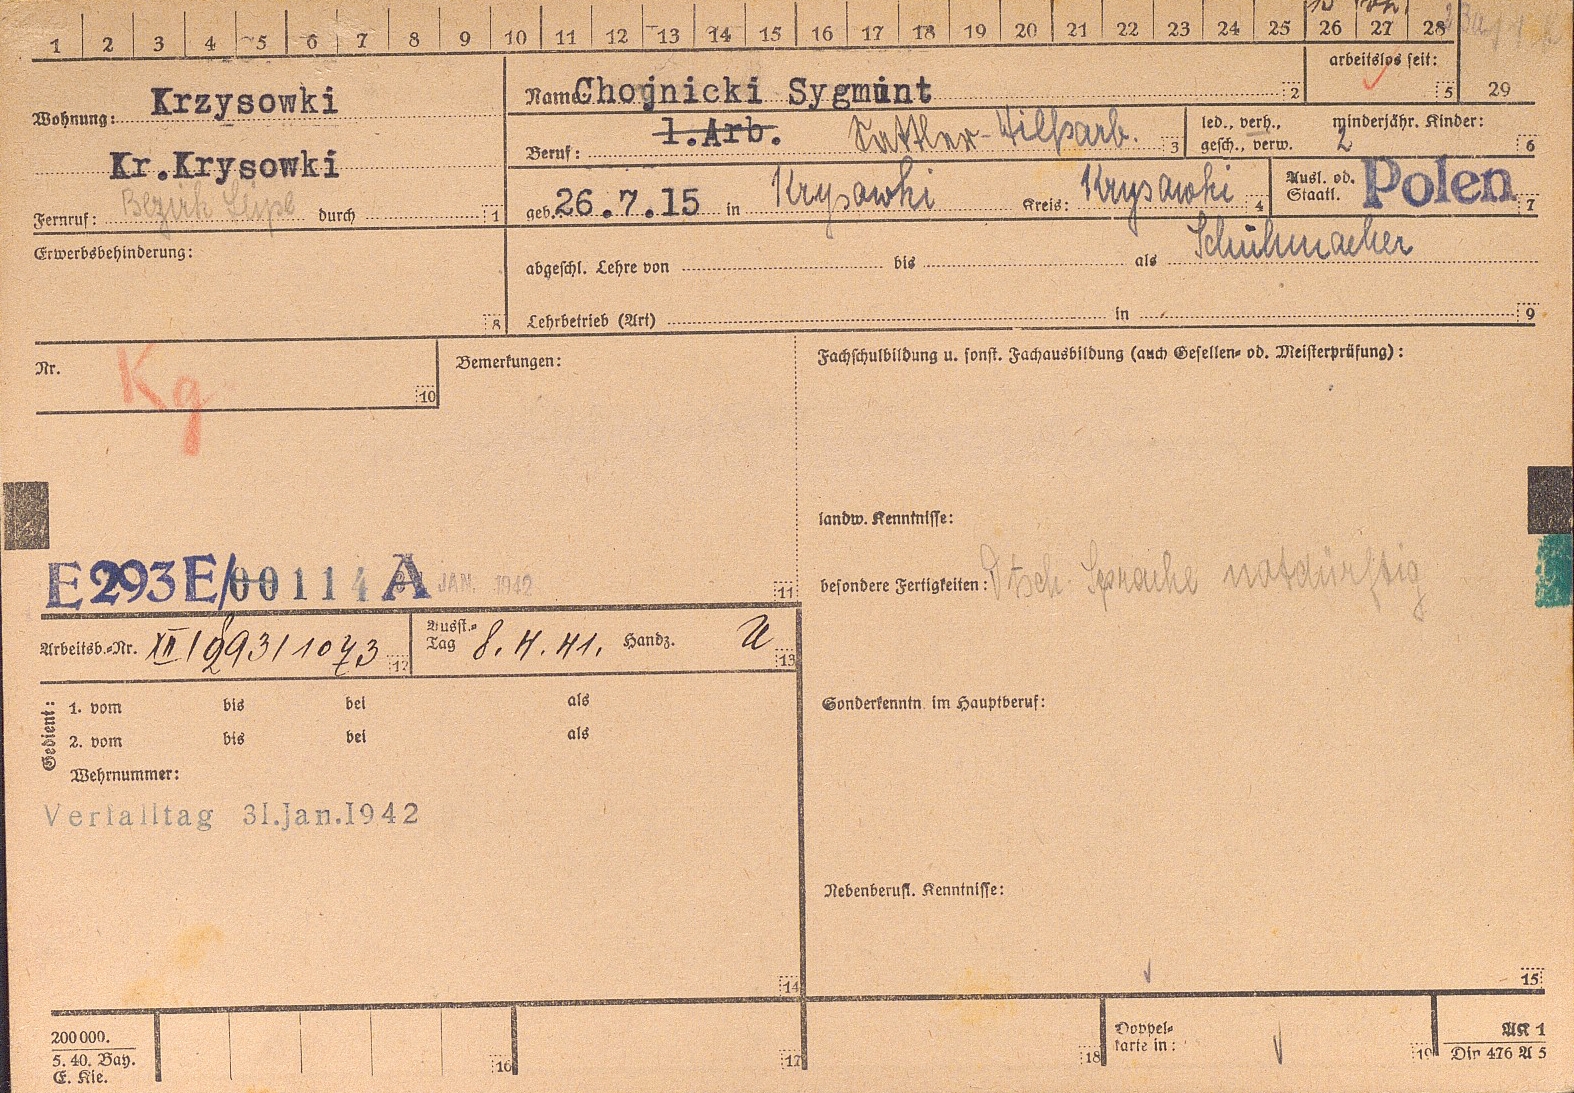 1 2 3 4 5 6 7 8 9 10 11 12 13 14 15 16 17 18 19 20 21 22 23 24 25 26 27 28
arbeitslos seit: 5 29
Wohnung: Krzysowki
Kr.Krysowki
Fernruf: Bezirk durch 1
Name Chojnicki Sygmunt 2
Beruf: 1.Arb. Sattler-Hilfsarb. 3
led., verh., gesch., verw. minderjähr. Kinder: 2 6
geb. 26.7.15 in Krysowki Kreis: Krysowki 4
Ausl. od. Staatl. Polen 7
Erwerbsbehinderung: 8
abgeschl. Lehre von bis als Schuhmacher
Lehrbetrieb (Art) in 9
Nr. Kg 10
Bemerkungen:
Fachschulbildung u. sonst. Fachausbildung (auch Gesellen- od. Meisterprüfung):
landw. Kenntnisse:
E293E/00114A JAN. 1942 11
besondere Fertigkeiten: Dtsch. Sprache notdürftig
Arbeitsb.-Nr. XII/293/1073 12
Ausst.-Tag 8.4.41. Handz. 13
Gedient:
1. vom bis bei als
2. vom bis bei als
Wehrnummer:
Verfalltag 31.Jan.1942
14
Sonderkenntn. im Hauptberuf:
Nebenberufl. Kenntnisse:
15
200000.
5. 40. Bay.
E. Kie.
16 17 18
Doppel-
karte in: 19
AK 1
Din 476 A 5